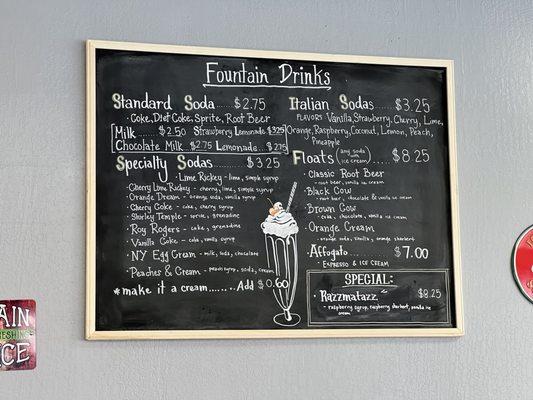 Fountain Drinks
Standard Soda........$2.75
Coke, Diet Coke, Sprite, Root Beer
Milk........$2.50 Strawberry Lemonade $3.25
Chocolate Milk $2.75 Lemonade...$2.75
Specialty Sodas.........$3.25
• Lime Rickey - lime, simple syrup
• Cherry Lime Rickey - cherry, lime, simple syrup
• Orange Dream - orange soda, vanilla syrup
• Cherry Coke - coke, cherry syrup
• Shirley Temple - sprite, grenadine
• Roy Rogers - coke, grenadine
• Vanilla Coke - coke, vanilla syrup
• NY Egg Cream - milk, soda, chocolate
• Peaches & Cream - peach syrup, soda, cream
*make it a cream........Add $0.60
Italian Sodas........$3.25
FLAVORS Vanilla, Strawberry, Cherry, Lime,
Orange, Raspberry, Coconut, Lemon, Peach,
Pineapple
Floats (any soda with ice cream)....$8.25
• Classic Root Beer
- root beer, vanilla ice cream
• Black Cow
- root beer, chocolate & vanilla ice cream
• Brown Cow
- coke, chocolate, vanilla ice cream
• Orange Cream
- orange soda, vanilla, orange sherbert
• Affogato..............$7.00
- ESPRESSO & ICE CREAM
SPECIAL:
• Razzmatazz $8.25
- raspberry syrup, raspberry sherbert, vanilla ice
cream
AIN
RESHING
ICE